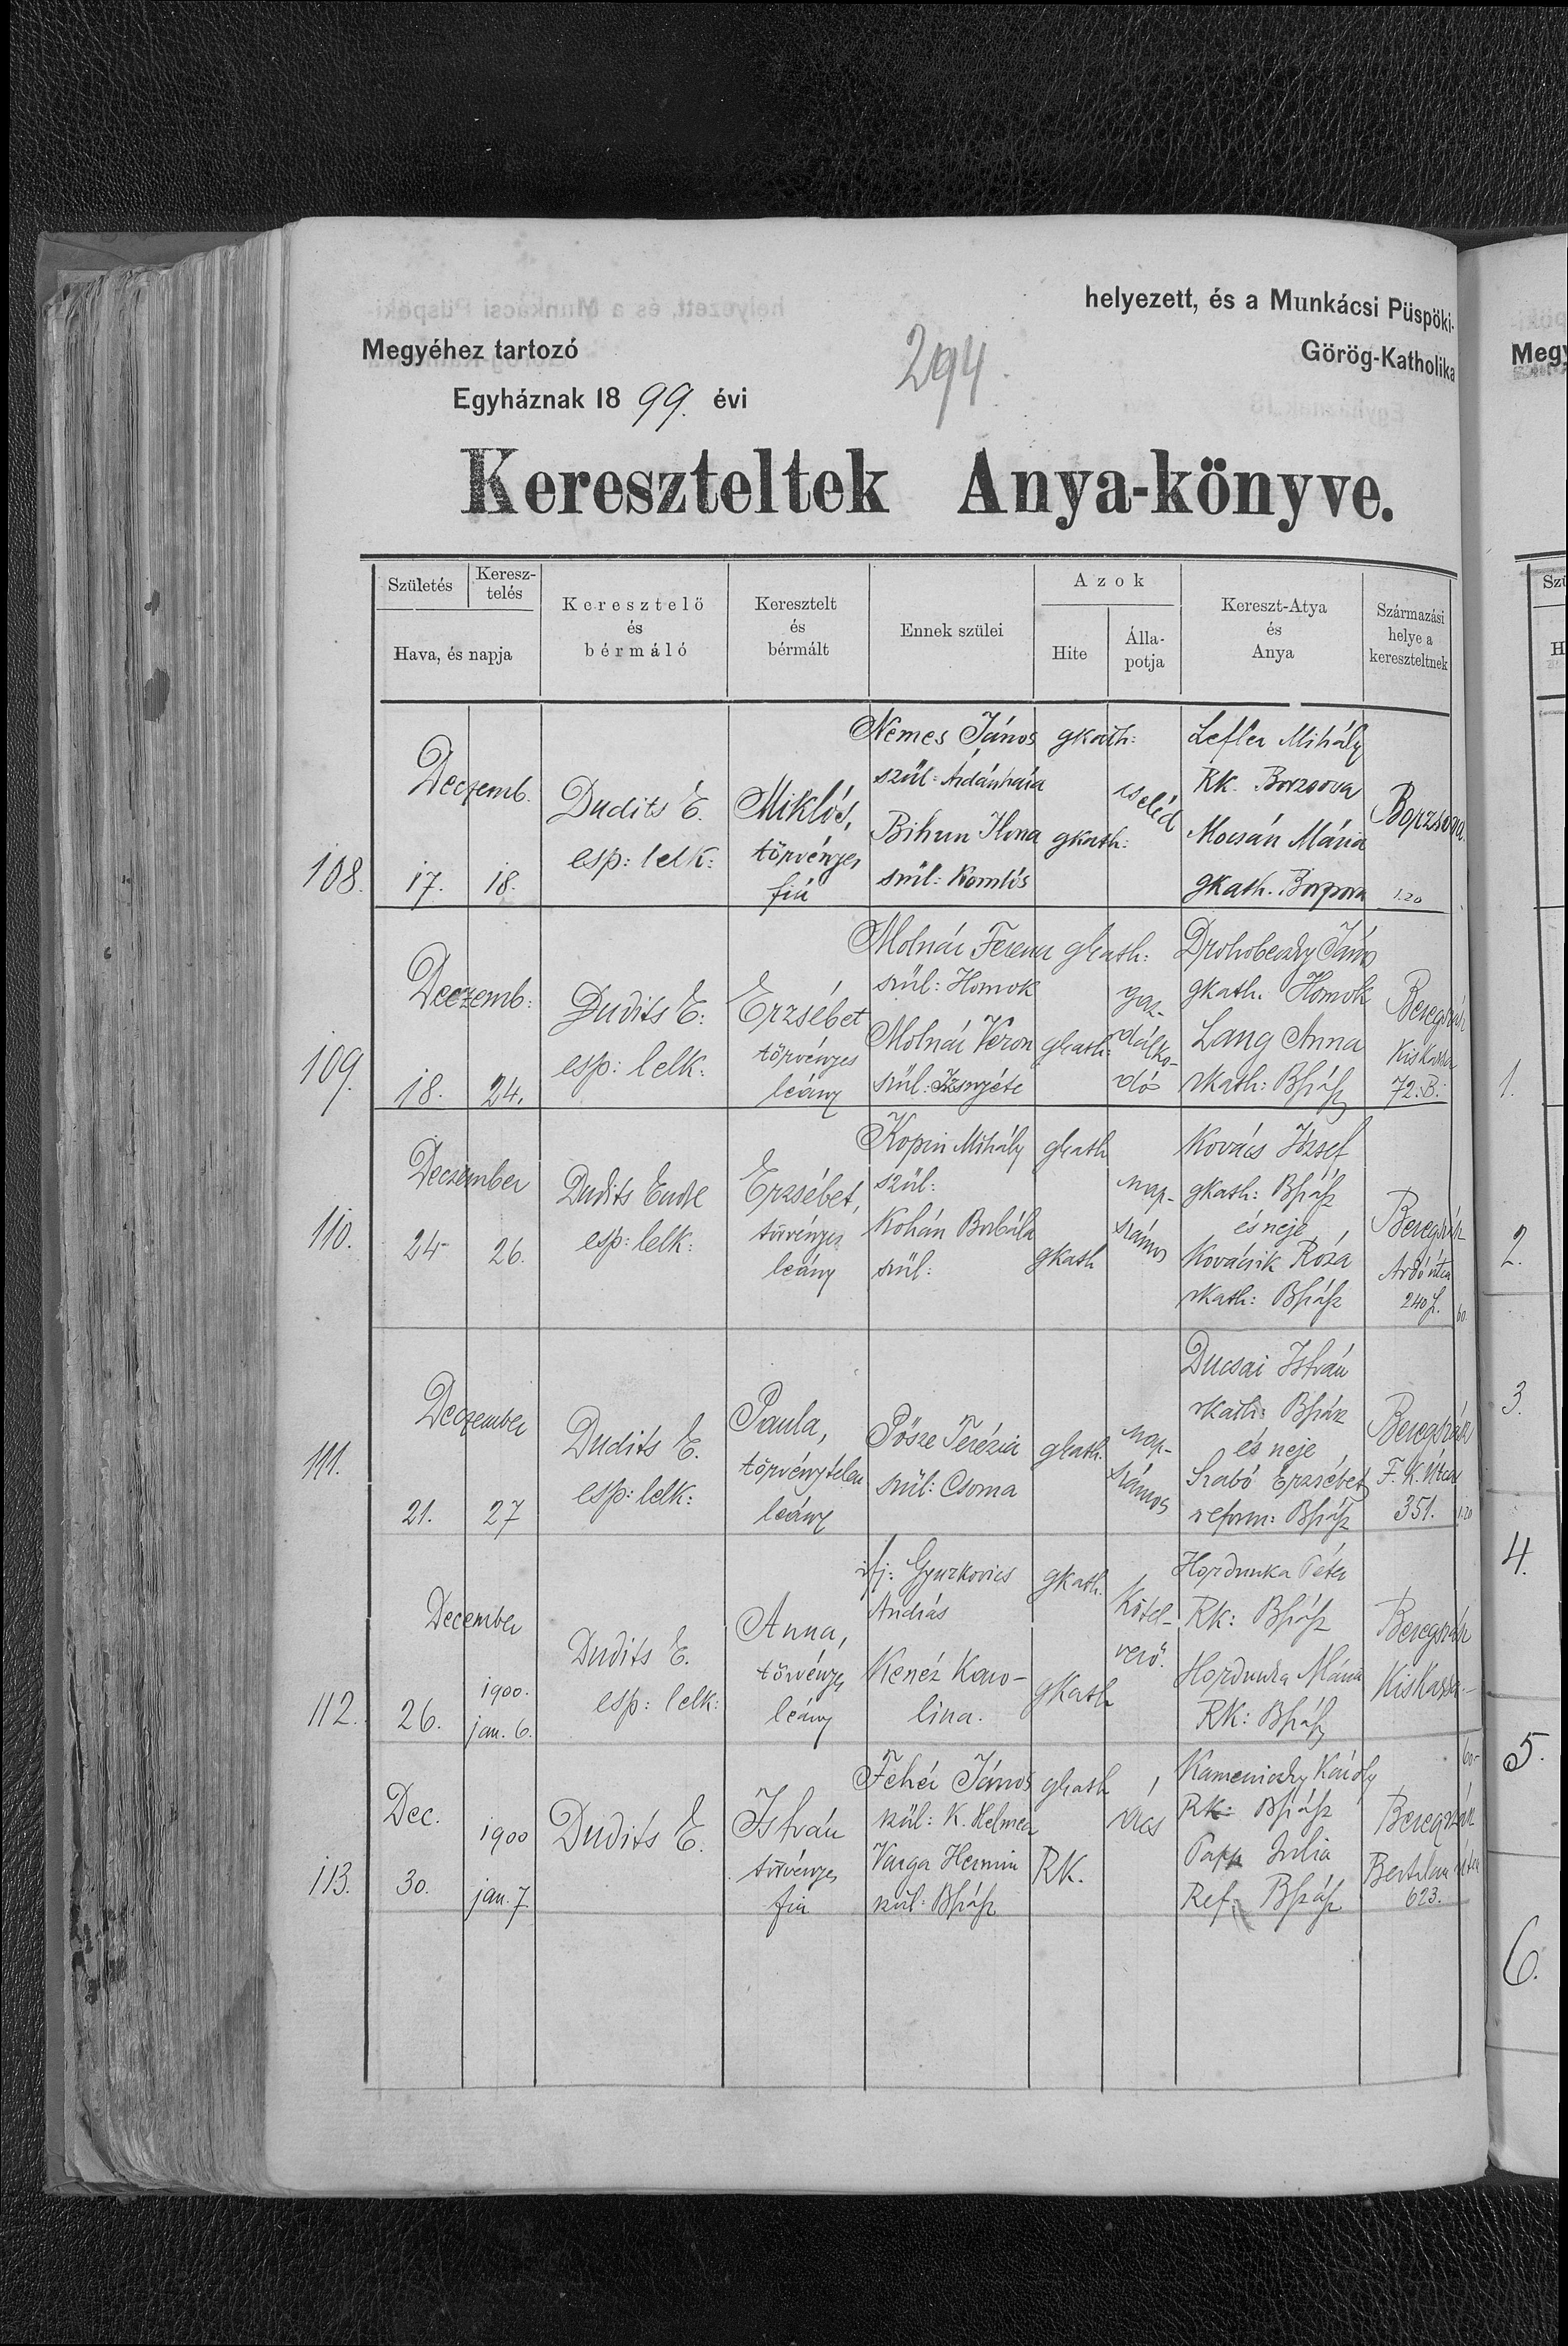 helyezett, és a Munkácsi Püspöki-
Megyéhez tartozó
Görög-Katholika
294.
Egyháznak 1899. évi
Kereszteltek Anya-könyve.
Születés
Keresz-
telés
Hava, és napja
Keresztelő
és
bérmáló
Keresztelt
és
bérmált
Ennek szülei
Azok
Hite
Álla-
potja
Kereszt-Atya
és
Anya
Származási
helye a
kereszteltnek
108.
Deczemb.
17. 18.
Dudits E.
esp: lelk:
Miklós,
törvényes
fiú
Nemes János
szül:
Bihun Ilona
szül: Komlós
gkath:
gkath:
cseléd
Lefler Mihály
Rk. Borzsova
Mocsán Mária
gkath. Borzsova
Borzsova
1.20
109.
Deczemb:
18. 24.
Dudits E:
esp: lelk:
Erzsébet
törvényes
leány
Molnár Ferencz
szül: Homok
Molnár Veron
szül: Izsnyéte
gkath:
gkath:
gaz-
dálko-
dó
Drohobeczky János
gkath. Homok
Lang Anna
rkath: Bszász
Beregszász
Kiskassa
72. B.
110.
Deczember
24 26.
Dudits Endre
esp: lelk:
Erzsébet,
törvényes
leány
Kopin Mihály
szül:
Kohán Borbála
szül:
gkath
gkath
nap-
számos
Kovács József
gkath: Bszász
és neje
Kovácsik Róza
rkath: Bszász
Beregszász
Ardó utca
240 f.
60.
111.
Deczember
21. 27
Dudits E.
esp: lelk:
Paula,
törvénytelen
leány
Pősze Terézia
szül: Csoma
gkath.
nap-
számos
Ducsai István
rkath: Bszász
és neje
Szabó Erzsébet
reform: Bszász
Beregszász
F. K. Utca
351.
1.20
112.
December
26.
1900.
jan. 6.
Dudits E.
esp: lelk:
Anna,
törvényes
leány
ifj: Gyurkovics
András
Kenéz Karo-
lina.
gkath.
gkath
Kötel-
verő.
Hordunka Péter
Rk: Bszász
Hordunka Mária
RK: Bszász
Beregszász
Kiskassa
60-
113.
Dec.
30.
1900
jan. 7
Dudits E.
István
törvényes
fiú
Fehér János
szül: K. Helmecz
Varga Hermin
szül: Bszász
gkath
RK.
ács
Kameniczky Károly
Rk: Bszász
Papp Julia
Ref. Bszász
Beregszász
Bertalan utca
623.
Megy
Szü
H
1.
2.
3.
4.
5.
6.